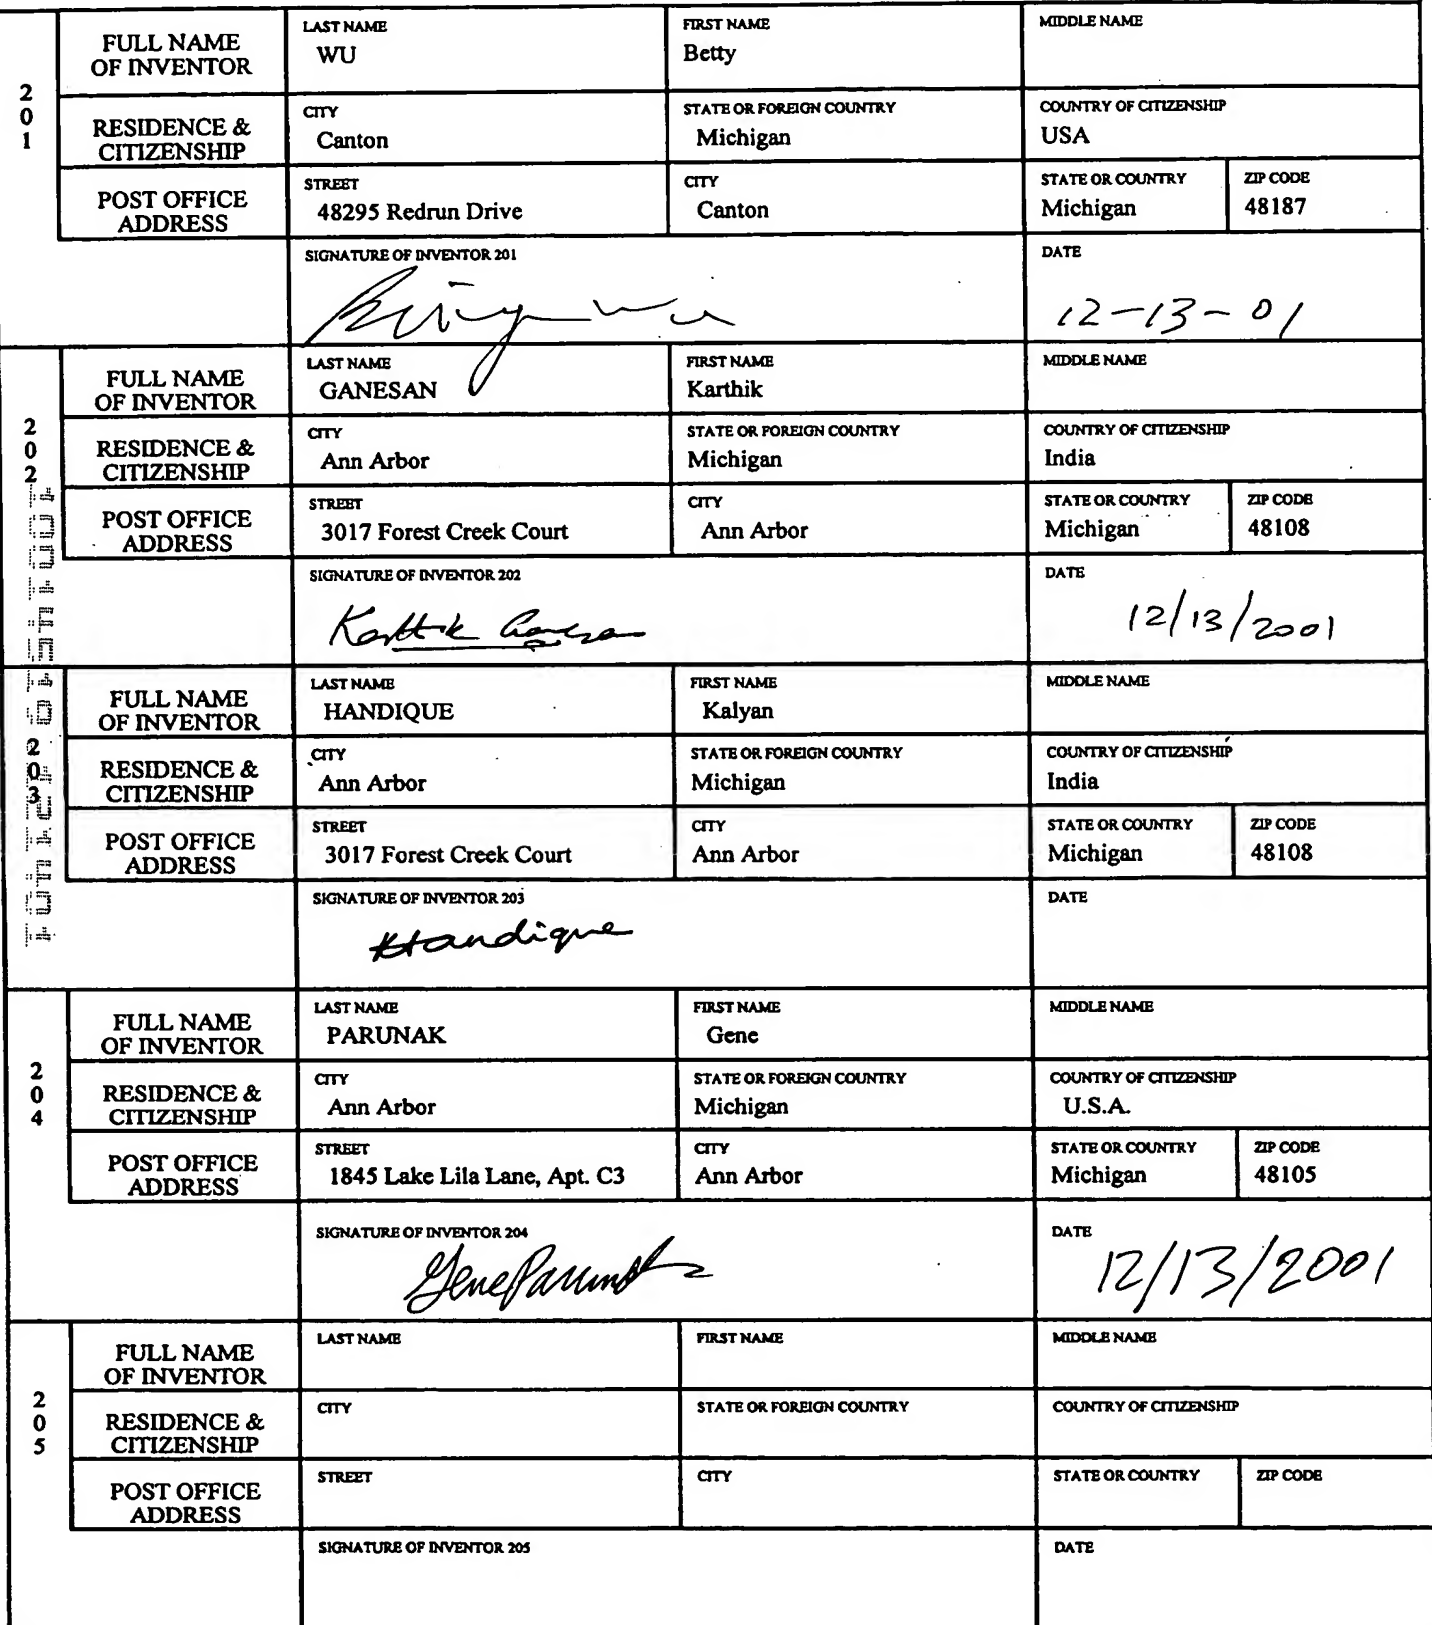 201
FULL NAME OF INVENTOR
LAST NAME WU
FIRST NAME Betty
MIDDLE NAME
RESIDENCE & CITIZENSHIP
CITY Canton
STATE OR FOREIGN COUNTRY Michigan
COUNTRY OF CITIZENSHIP USA
POST OFFICE ADDRESS
STREET 48295 Redrun Drive
CITY Canton
STATE OR COUNTRY Michigan
ZIP CODE 48187
SIGNATURE OF INVENTOR 201
Wu
DATE
12-13-01
202
FULL NAME OF INVENTOR
LAST NAME GANESAN
FIRST NAME Karthik
MIDDLE NAME
RESIDENCE & CITIZENSHIP
CITY Ann Arbor
STATE OR FOREIGN COUNTRY Michigan
COUNTRY OF CITIZENSHIP India
POST OFFICE ADDRESS
STREET 3017 Forest Creek Court
CITY Ann Arbor
STATE OR COUNTRY Michigan
ZIP CODE 48108
SIGNATURE OF INVENTOR 202
Karthik Ganesan
DATE
12/13/2001
203
FULL NAME OF INVENTOR
LAST NAME HANDIQUE
FIRST NAME Kalyan
MIDDLE NAME
RESIDENCE & CITIZENSHIP
CITY Ann Arbor
STATE OR FOREIGN COUNTRY Michigan
COUNTRY OF CITIZENSHIP India
POST OFFICE ADDRESS
STREET 3017 Forest Creek Court
CITY Ann Arbor
STATE OR COUNTRY Michigan
ZIP CODE 48108
SIGNATURE OF INVENTOR 203
Handique
DATE
204
FULL NAME OF INVENTOR
LAST NAME PARUNAK
FIRST NAME Gene
MIDDLE NAME
RESIDENCE & CITIZENSHIP
CITY Ann Arbor
STATE OR FOREIGN COUNTRY Michigan
COUNTRY OF CITIZENSHIP U.S.A.
POST OFFICE ADDRESS
STREET 1845 Lake Lila Lane, Apt. C3
CITY Ann Arbor
STATE OR COUNTRY Michigan
ZIP CODE 48105
SIGNATURE OF INVENTOR 204
Gene Parunak
DATE
12/13/2001
205
FULL NAME OF INVENTOR
LAST NAME
FIRST NAME
MIDDLE NAME
RESIDENCE & CITIZENSHIP
CITY
STATE OR FOREIGN COUNTRY
COUNTRY OF CITIZENSHIP
POST OFFICE ADDRESS
STREET
CITY
STATE OR COUNTRY
ZIP CODE
SIGNATURE OF INVENTOR 205
DATE